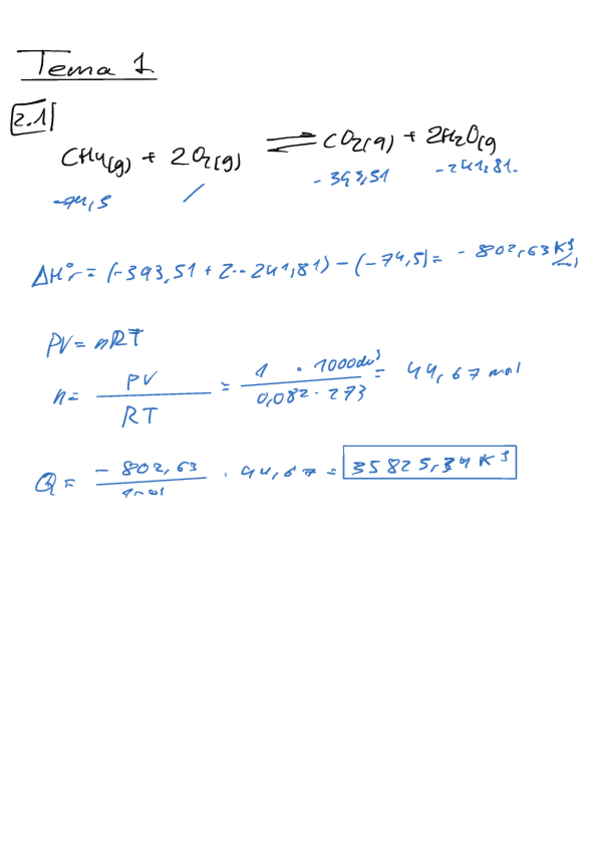 Tema 1
2.1
CH4(g) + 2O2(g) ⇌ CO2(g) + 2H2O(g
-74,5 / -393,51 -241,81.
ΔH°r = (-393,51 + 2·-241,81) - (-74,5) = -802,63 KJ/mol
PV = nRT
n = PV/RT = 1 · 1000dm³/0,082·273 = 44,67 mol
Q = -802,63/1mol · 44,67 = 35825,34 KJ